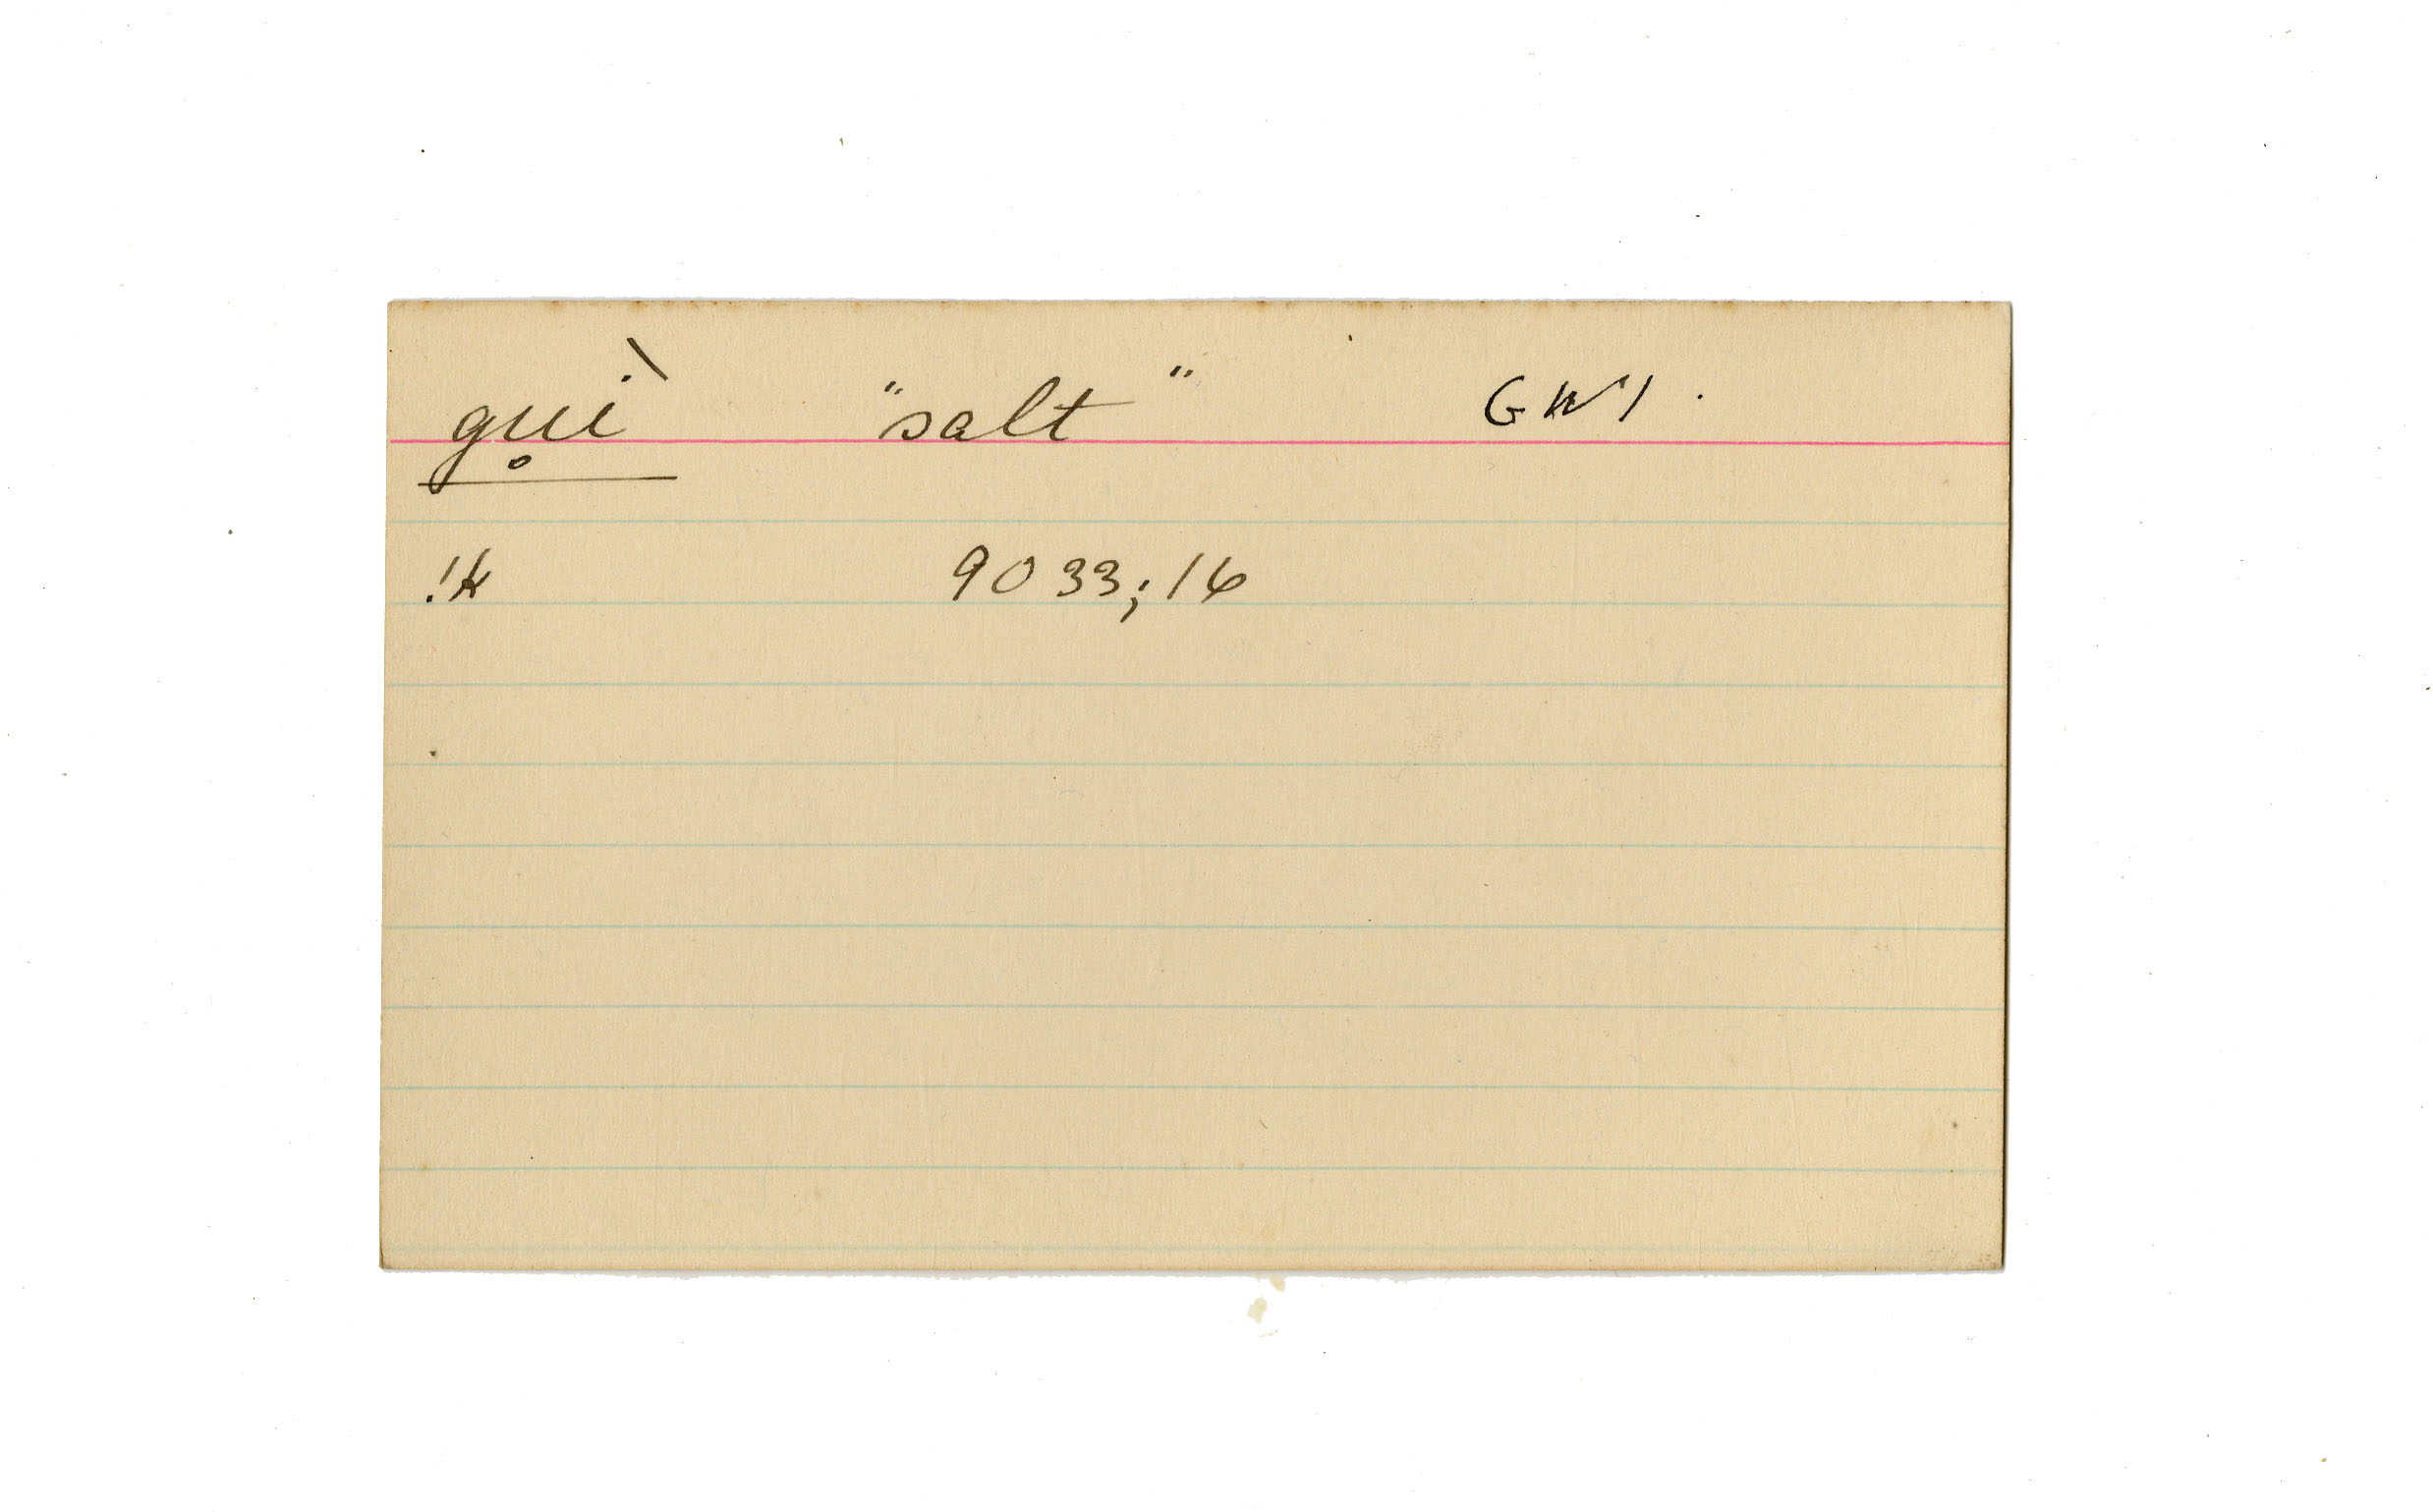 gu̥ì "salt" GW1.
!k 9033;16